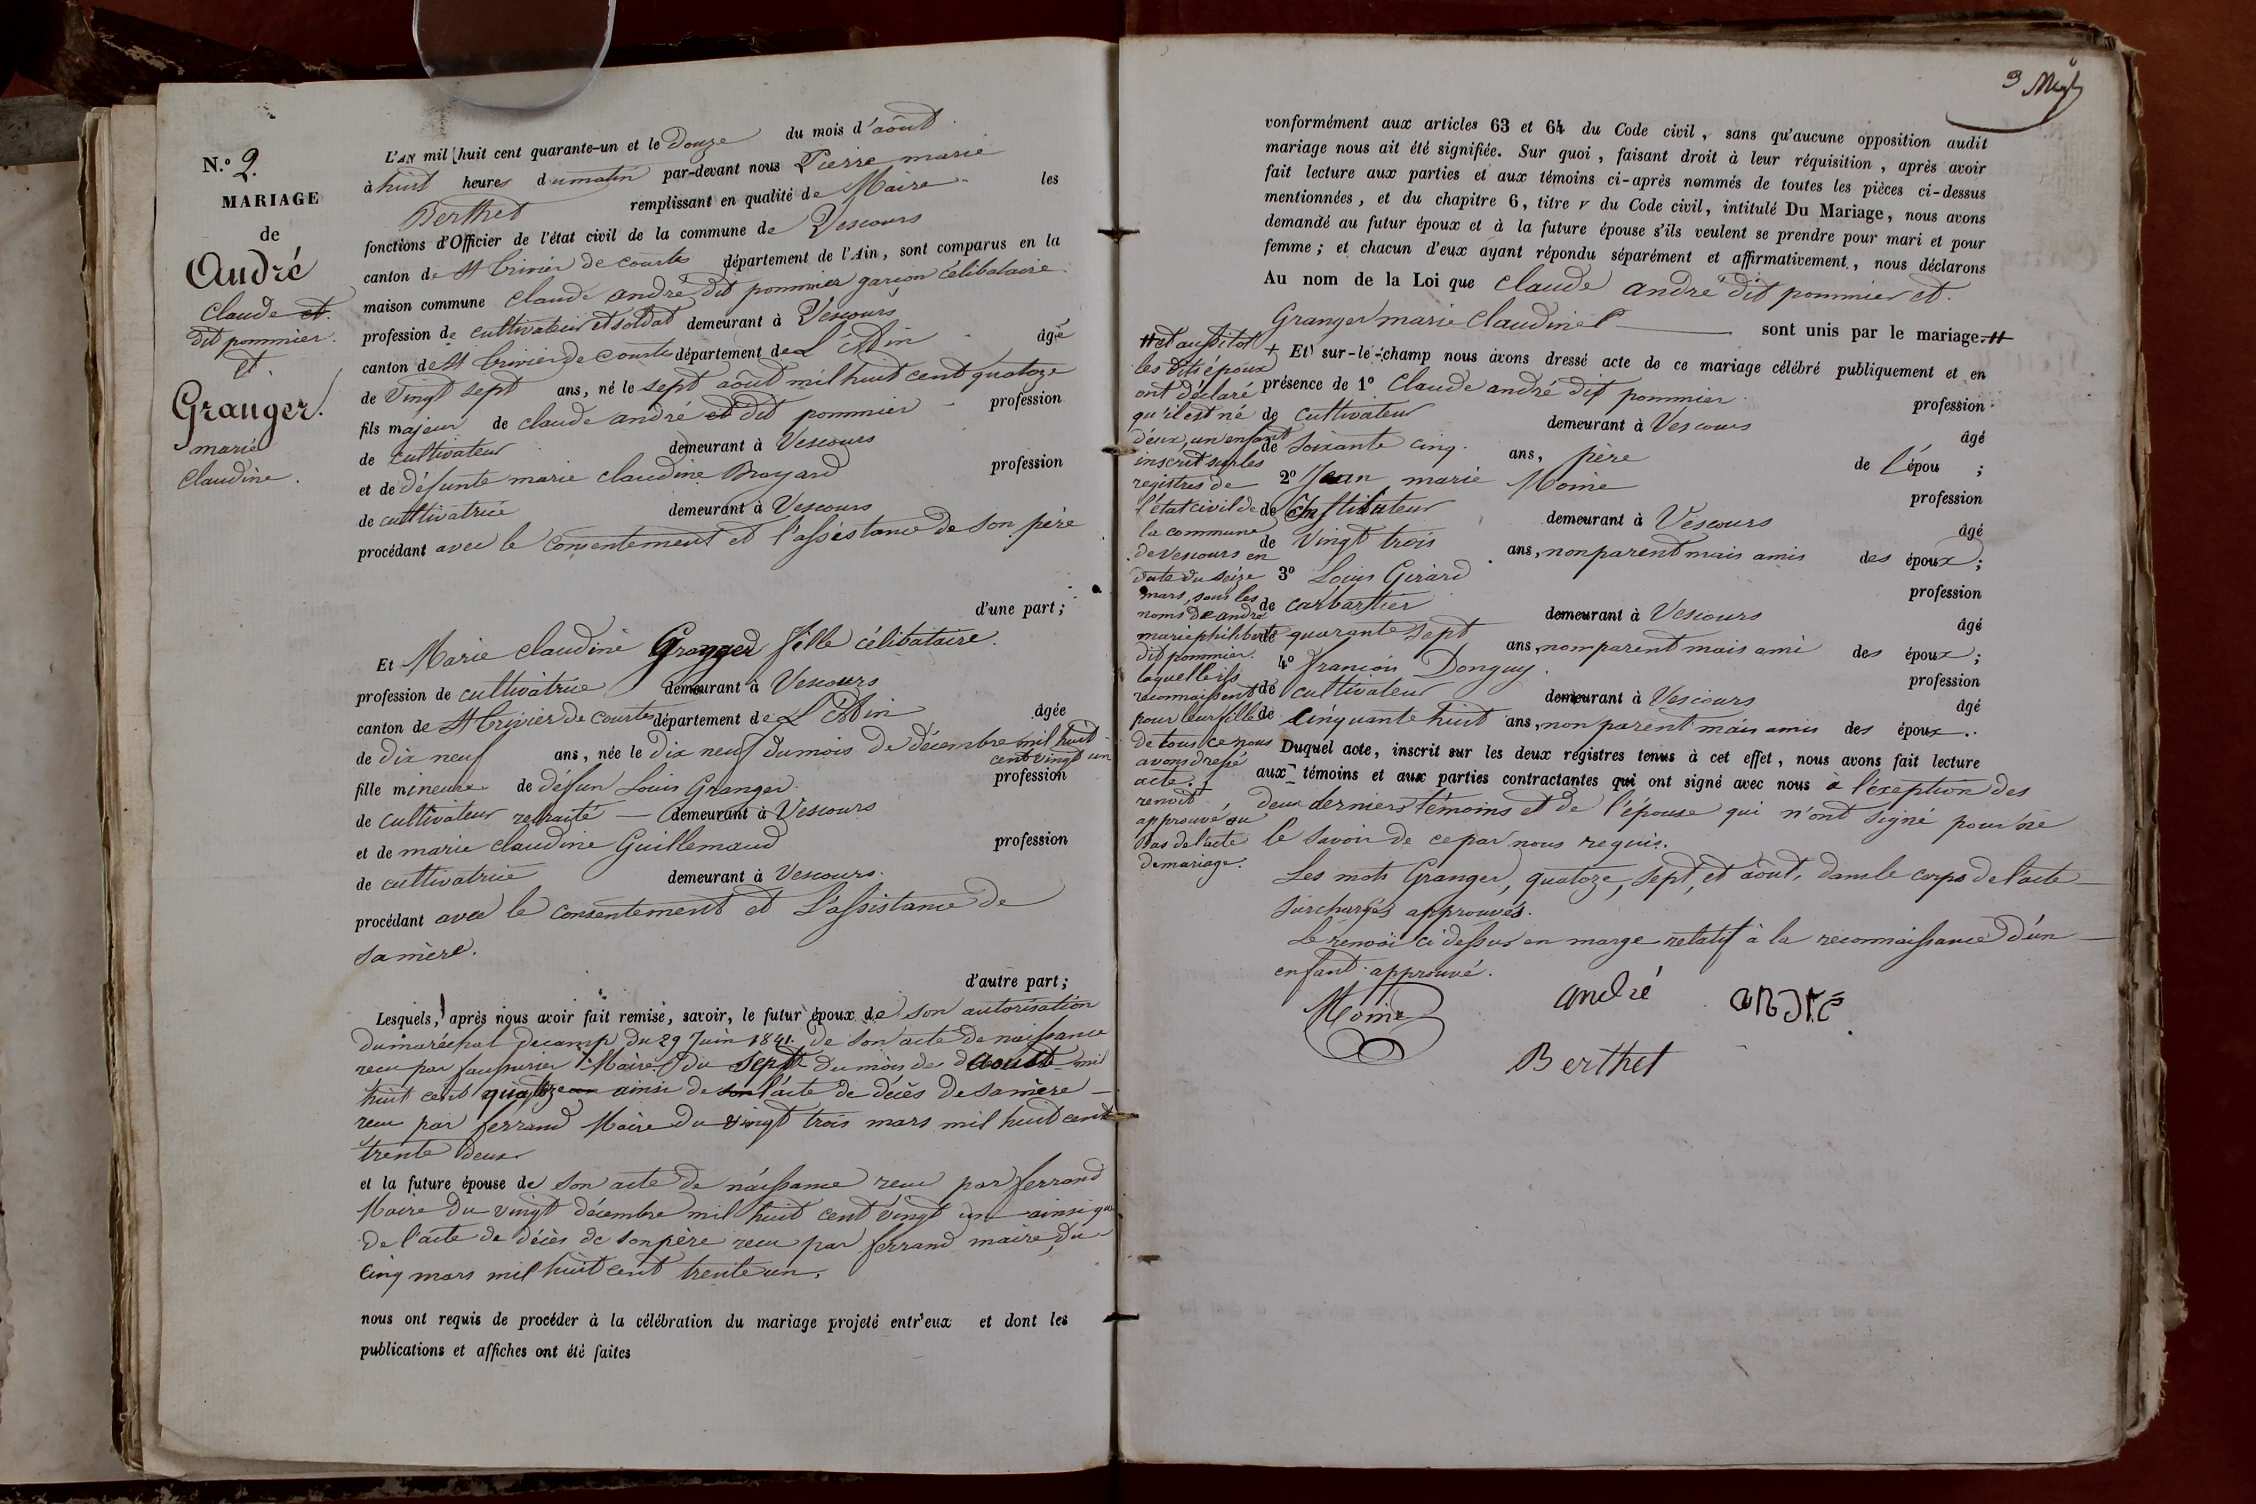 N.º 2.
MARIAGE
de
André
Claude et
dit pommier.
et
Granger.
marie
Claudine.
L'AN mil huit cent quarante-un et le Douze du mois d'août
à huit heures du matin par-devant nous Pierre marie
Berthet remplissant en qualité de Maire les
fonctions d'Officier de l'état civil de la commune de Vescours
canton de St trivier de courtes département de l'Ain, sont comparus en la
maison commune Claude andré dit pommier garçon célibataire
profession de cultivateur et soldat demeurant à Vescours
canton de St trivier de courtes département de L'Ain âgé
de Vingt sept ans, né le sept août mil huit cent quatoze
fils majeur de claude andré et dit pommier profession
de cultivateur demeurant à Vescours
et de défunte marie claudine Broyard profession
de cultivatrice demeurant à Vescours
procédant avec le consentement et l'assistance de son père
d'une part;
Et Marie claudine Granger fille célibataire.
profession de cultivatrice demeurant à Vescours
canton de St trivier de courtes département de L'Ain âgée
de dix neuf ans, née le dix neuf du mois de décembre mil huit
cent vingt un
fille mineure de défun Louis Granger profession
de cultivateur retraité demeurant à Vescours
et de marie claudine Guillemaud profession
de cultivatrice demeurant à Vescours.
procédant avec le consentement et L'assistance de
sa mère.
d'autre part;
Lesquels, après nous avoir fait remise, savoir, le futur époux de son autorisation
du maréchal decamp du 29 Juin 1841. de son acte de naissance
recu par Maire du sept du mois de mil
huit cent quatoze ainsi de l'acte de décès de sa mère
recu par ferrand Maire du vingt trois mars mil huit cent
trente deux
et la future épouse de son acte de naissance recu par ferrand
Maire du vingt décembre mil huit cent vingt un ainsi que
de l'acte de décès de son père recu par ferrand maire du
Cinq mars mil huit cent trente un.
nous ont requis de procéder à la célébration du mariage projeté entr'eux et dont les
publications et affiches ont été faites
3
conformément aux articles 63 et 64 du Code civil, sans qu'aucune opposition audit
mariage nous ait été signifiée. Sur quoi, faisant droit à leur réquisition, après avoir
fait lecture aux parties et aux témoins ci-après nommés de toutes les pièces ci-dessus
mentionnées, et du chapitre 6, titre v du Code civil, intitulé Du Mariage, nous avons
demandé au futur époux et à la future épouse s'ils veulent se prendre pour mari et pour
femme; et chacun d'eux ayant répondu séparément et affirmativement, nous déclarons
Au nom de la Loi que Claude andré dit pommier et
Granger marie Claudine sont unis par le mariage.
Et sur-le-champ nous avons dressé acte de ce mariage célébré publiquement et en
présence de 1º Claude andré dit pommier profession
de cultivateur demeurant à Vescours âgé
de soixante cinq ans, père de l'épou ;
2º Jean marie Moine profession
de demeurant à Vescours âgé
de Vingt trois ans, non parent mais amis des époux;
3º Louis Girard profession
de carbartier demeurant à Vescours âgé
de quarante sept ans, non parent mais ami des époux;
4º françois Donguy profession
de cultivateur demeurant à Vescours âgé
de Cinquante huit ans, non parent mais amis des époux.
Duquel acte, inscrit sur les deux registres tenus à cet effet, nous avons fait lecture
aux témoins et aux parties contractantes qui ont signé avec nous à l'exeption des
deux derniers témoins et de l'épouse qui n'ont signé pour ne
le savoir de ce par nous requis.
Les mots Granger, quatoze, sept, et août, dans le corps de l'acte
surchargés approuvés.
Le renvoi ci dessus en marge relatif à la reconnaissance d'un
enfant approuvé.
et aussitot
les dits époux
ont déclaré
qu'il est né
d'eux, un enfant
inscrit sur les
registres de
l'état civil de
la commune
de Vescours en
date du seize
mars, sous les
noms de andré
marie philiberte
dit pommier.
laquelle ils
reconnaissent
pour leur fille
de tous ce nous
avons dressé
acte.
renvoit
approuvé au
bas de l'acte
de mariage.
Moine
andré
andré
Berthet